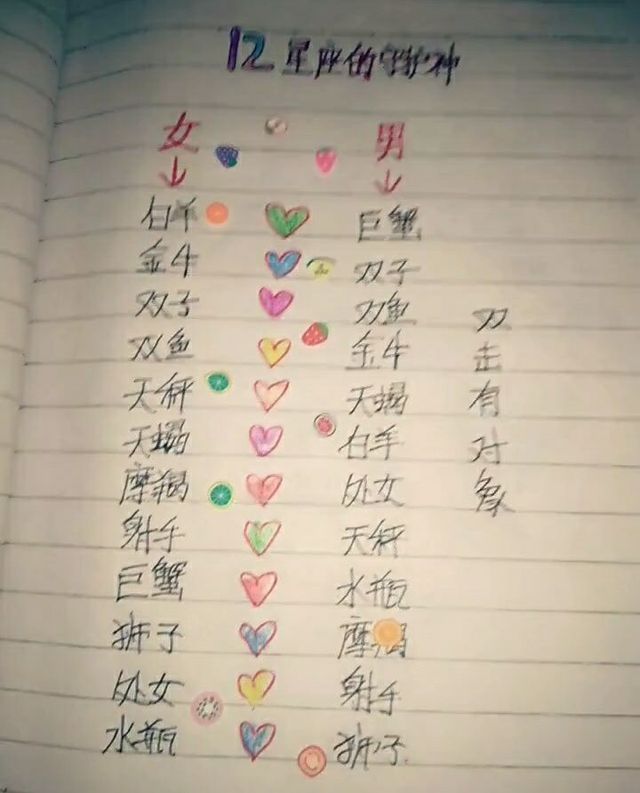 12星座的守护神
女 男
白羊 巨蟹
金牛 双子
双子 双鱼
双鱼 金牛
天秤 天蝎
天蝎 白羊
摩羯 处女
射手 天秤
巨蟹 水瓶
狮子 摩羯
处女 射手
水瓶 狮子
双击有对象